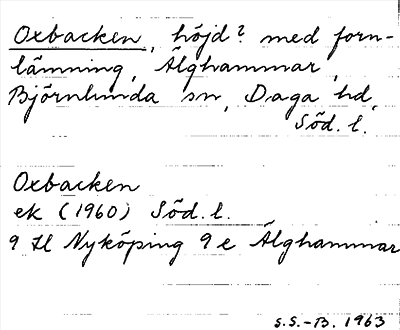 Oxbacken, höjd? med forn-
lämning, Älghammar,
Björnlunda sn, Daga hd,
Söd. l.
Oxbacken
ek (1960) Söd. l.
9 H Nyköping 9 e Älghammar
S.S.-B. 1963